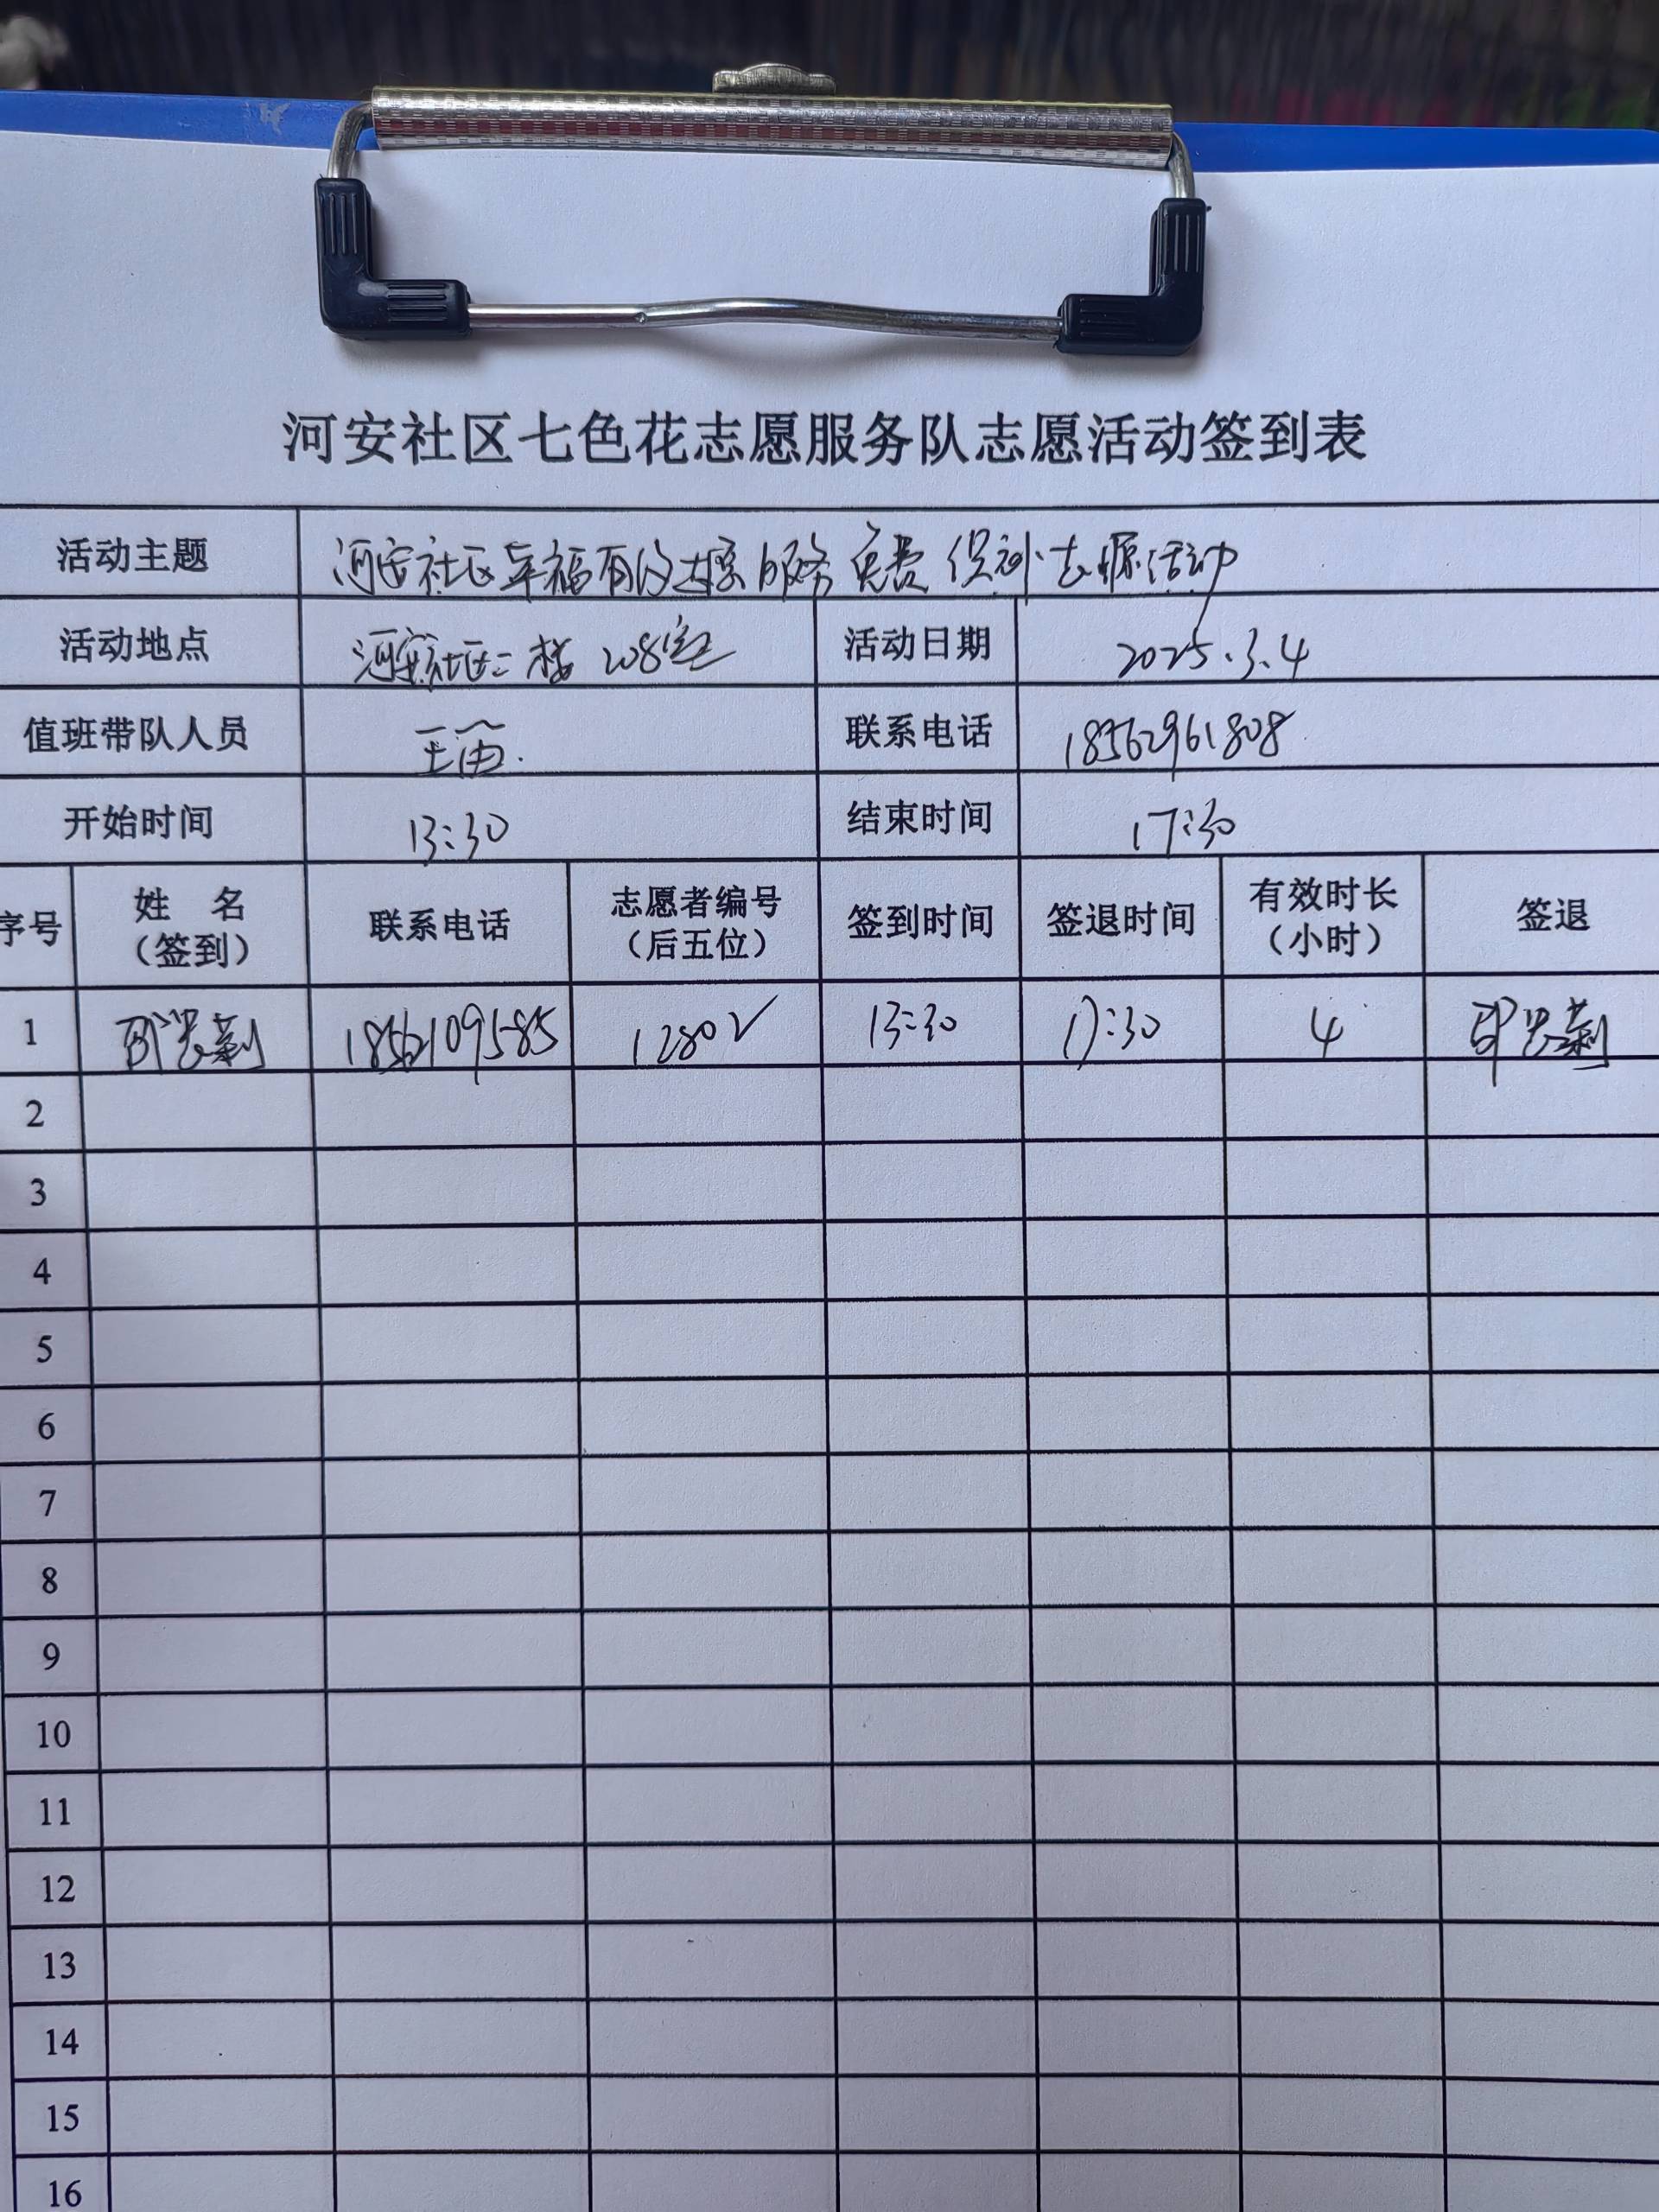 河安社区七色花志愿服务队志愿活动签到表
活动主题 河安社区幸福有约 服务 免费 志愿活动
活动地点 河安社区二楼 208室 活动日期 2025.3.4
值班带队人员 王雷. 联系电话 18562961808
开始时间 13:30 结束时间 17:30
序号 姓 名（签到） 联系电话 志愿者编号（后五位） 签到时间 签退时间 有效时长（小时） 签退
1 18562109585 1280 13:30 17:30 4
2
3
4
5
6
7
8
9
10
11
12
13
14
15
16